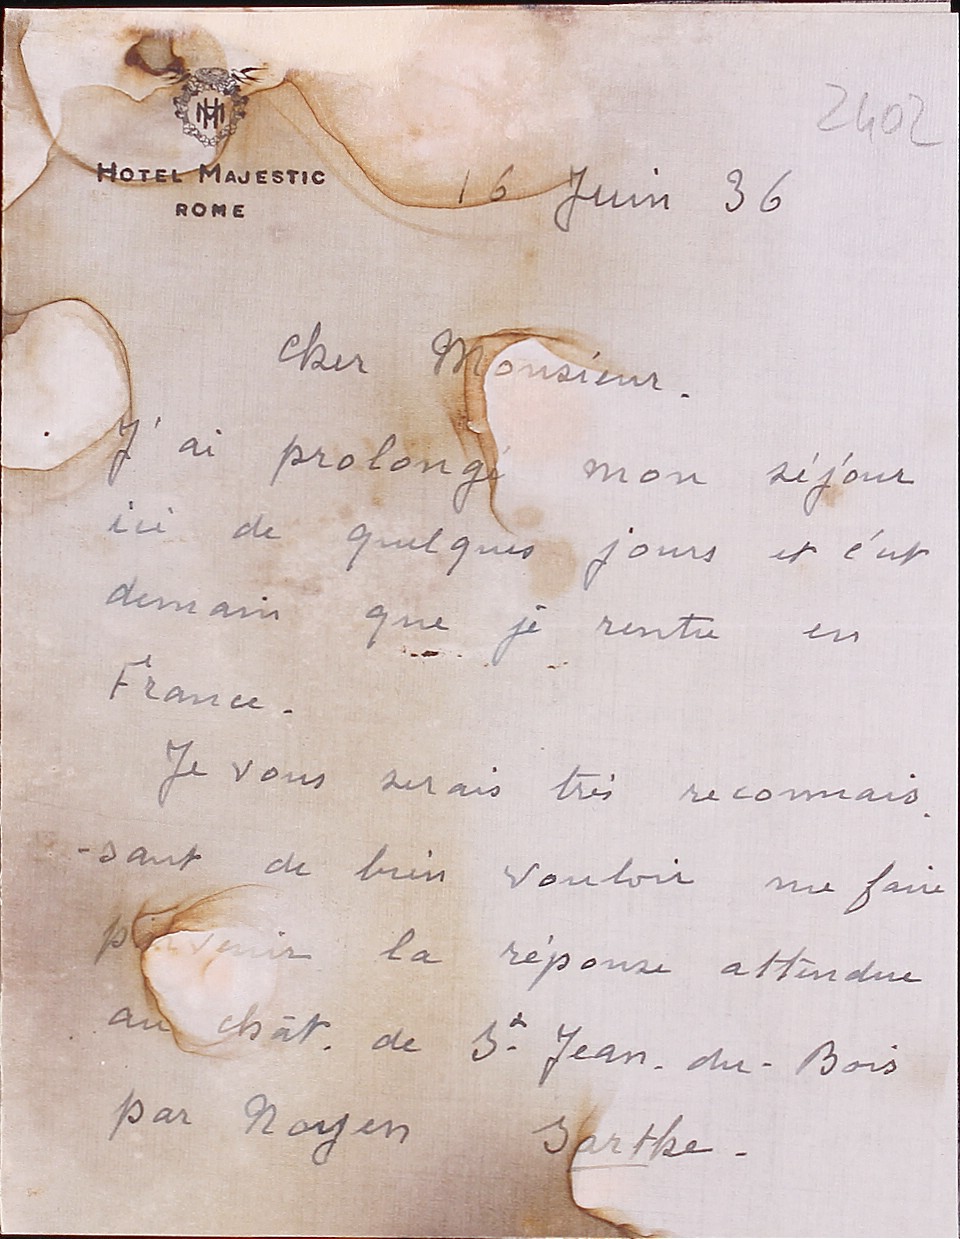 2402
HM
HOTEL MAJESTIC
ROME
16 Juin 36
Cher Monsieur.
J'ai prolongé mon séjour
ici de quelques jours et c'est
demain que je rentre en
France.
Je vous serais très reconnais.
-sant de bien vouloir me faire
parvenir la réponse attendue
au chât. de St. Jean-du-Bois
par Noyen Sarthe-